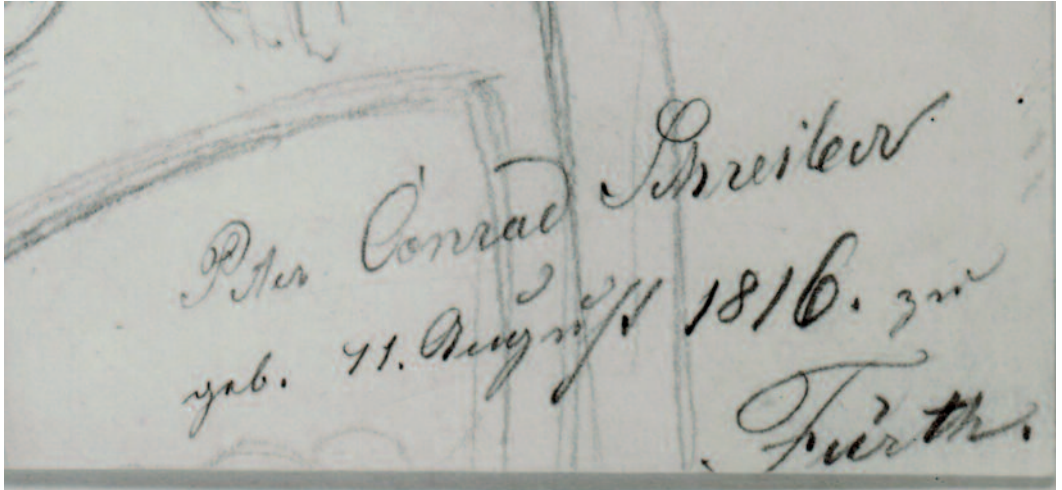 Peter Conrad Schreiber
geb. 11. August 1816. zu
Fürth.